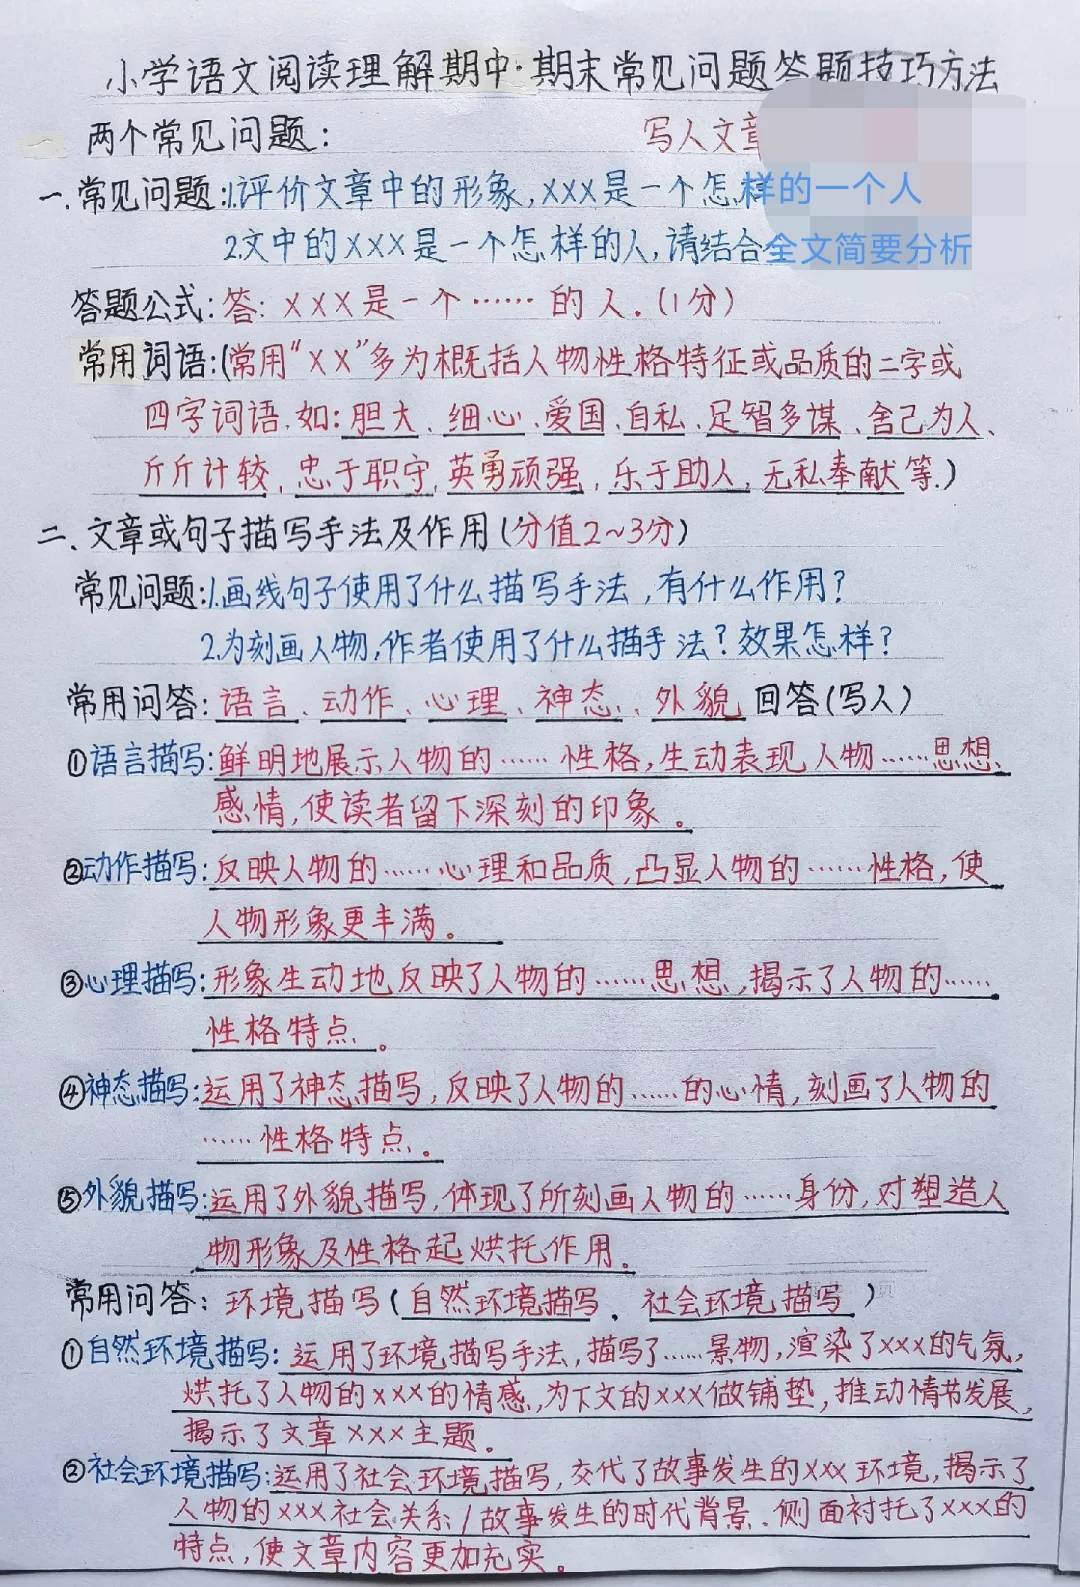 小学语文阅读理解期中·期末常见问题答题技巧方法
两个常见问题: 写人文章
一.常见问题:1.评价文章中的形象,XXX是一个怎样的一个人
2.文中的XXX是一个怎样的人,请结合全文简要分析
答题公式:答:XXX是一个……的人.(1分)
常用词语:(常用“XX”多为概括人物性格特征或品质的二字或
四字词语.如:胆大、细心、爱国、自私、足智多谋、舍己为人、
斤斤计较、忠于职守、英勇顽强、乐于助人、无私奉献等.)
二、文章或句子描写手法及作用(分值2~3分)
常见问题:1.画线句子使用了什么描写手法,有什么作用?
2.为刻画人物,作者使用了什么描手法?效果怎样?
常用问答:语言、动作、心理、神态、外貌回答(写人)
①语言描写:鲜明地展示人物的……性格,生动表现人物……思想、
感情,使读者留下深刻的印象。
②动作描写:反映人物的……心理和品质,凸显人物的……性格,使
人物形象更丰满。
③心理描写:形象生动地反映了人物的……思想,揭示了人物的……
性格特点。
④神态描写:运用了神态描写,反映了人物的……的心情,刻画了人物的
……性格特点。
⑤外貌描写:运用了外貌描写,体现了所刻画人物的……身份,对塑造人
物形象及性格起烘托作用。
常用问答:环境描写(自然环境描写、社会环境描写)
①自然环境描写:运用了环境描写手法,描写了……景物,渲染了xxx的气氛,
烘托了人物的xxx的情感,为下文的xxx做铺垫,推动情节发展,
揭示了文章xxx主题。
②社会环境描写:运用了社会环境描写,交代了故事发生的xxx环境,揭示了
人物的xxx社会关系/故事发生的时代背景.侧面衬托了xxx的
特点,使文章内容更加充实。